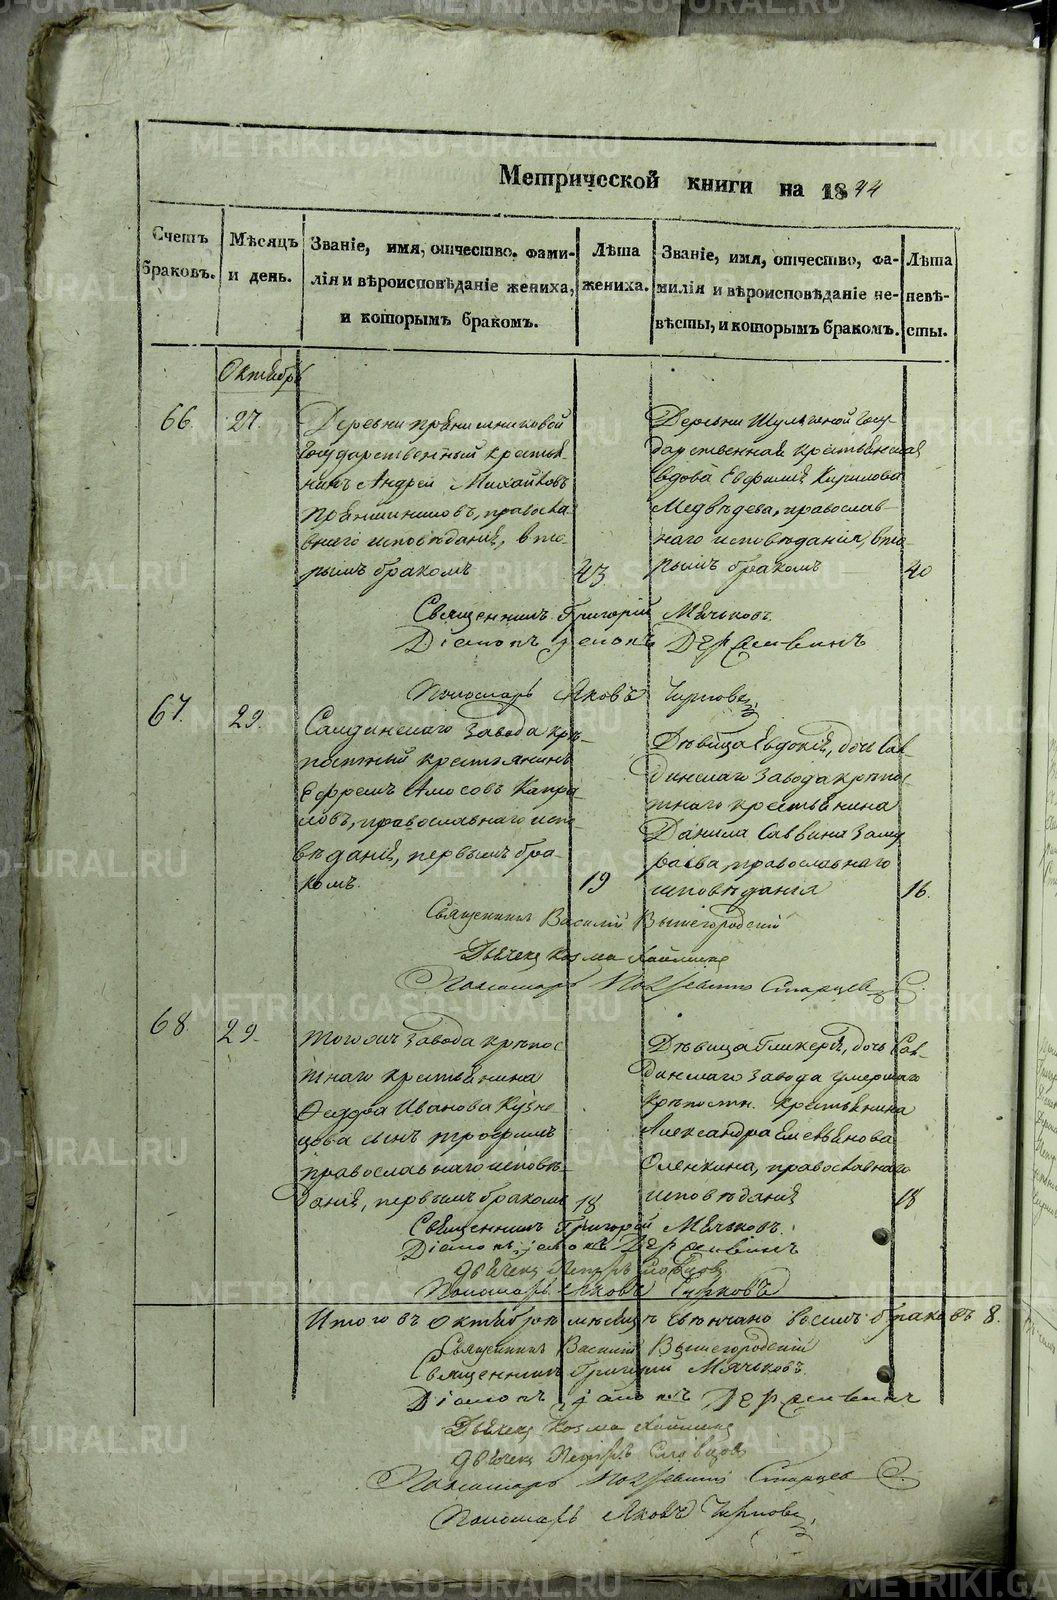 Метрической книги на 1844
Счетъ браковъ.
Мѣсяцъ и день.
Званіе, имя, отчество, фами-
лія и вѣроисповѣданіе жениха,
и которымъ бракомъ.
Лѣта
жениха.
Званіе, имя, отчество, фа-
милія и вѣроисповѣданіе не-
вѣсты, и которымъ бракомъ.
Лѣта
невѣ-
сты.
Октябрь
66. 27.
Деревни
Государственный крестья
нинъ Андрей Михайловъ
правосла
внаго исповѣданія, вто-
рымъ бракомъ 43
Деревни Госу-
дарственная крестьянская
вдова Евфимія Кирилова
Медвѣдева, православ-
наго исповѣданія, вто-
рымъ бракомъ 40
Священникъ Григорій Мячьковъ.
Діаконъ
Пономарь Яковъ
67. 29.
Салдинскаго завода крѣ-
постный крестьянинъ
Ефремъ Амосовъ Капра
ловъ, православнаго испо-
вѣданія, первымъ бра-
комъ. 19
Дѣвица Евдокія, дочь Сал-
динскаго завода крѣпос-
тнаго крестьянина
Данила Саввина
православнаго
исповѣданія 16.
Священникъ Василій Вышегородскій
Дьячекъ Козма
Пономарь Старцевъ
68 29.
Тогожъ завода крѣпос
тнаго крестьянина
Федора Иванова Кузне
цова сынъ Трофимъ
православнаго исповѣ-
данія, первымъ бракомъ 18
Дѣвица Гликерія, дочь Сал-
динскаго завода умершаго
крѣпостн. крестьянина
Александра Емельянова
Оленкина, православнаго
исповѣданія 18
Священникъ Григорій Мячьковъ.
Діаконъ
Дьячекъ Петръ Словцовъ
Пономарь Яковъ
Итого въ Октябрѣ мѣсяцѣ свѣнчано восемь браковъ 8.
Священникъ Василій Вышегородскій
Священникъ Григорій Мячьковъ.
Діаконъ
Дьячекъ Козма
Дьячекъ Петръ Словцовъ
Пономарь Старцевъ
Пономарь Яковъ
METRIKI.GASO-URAL.RU